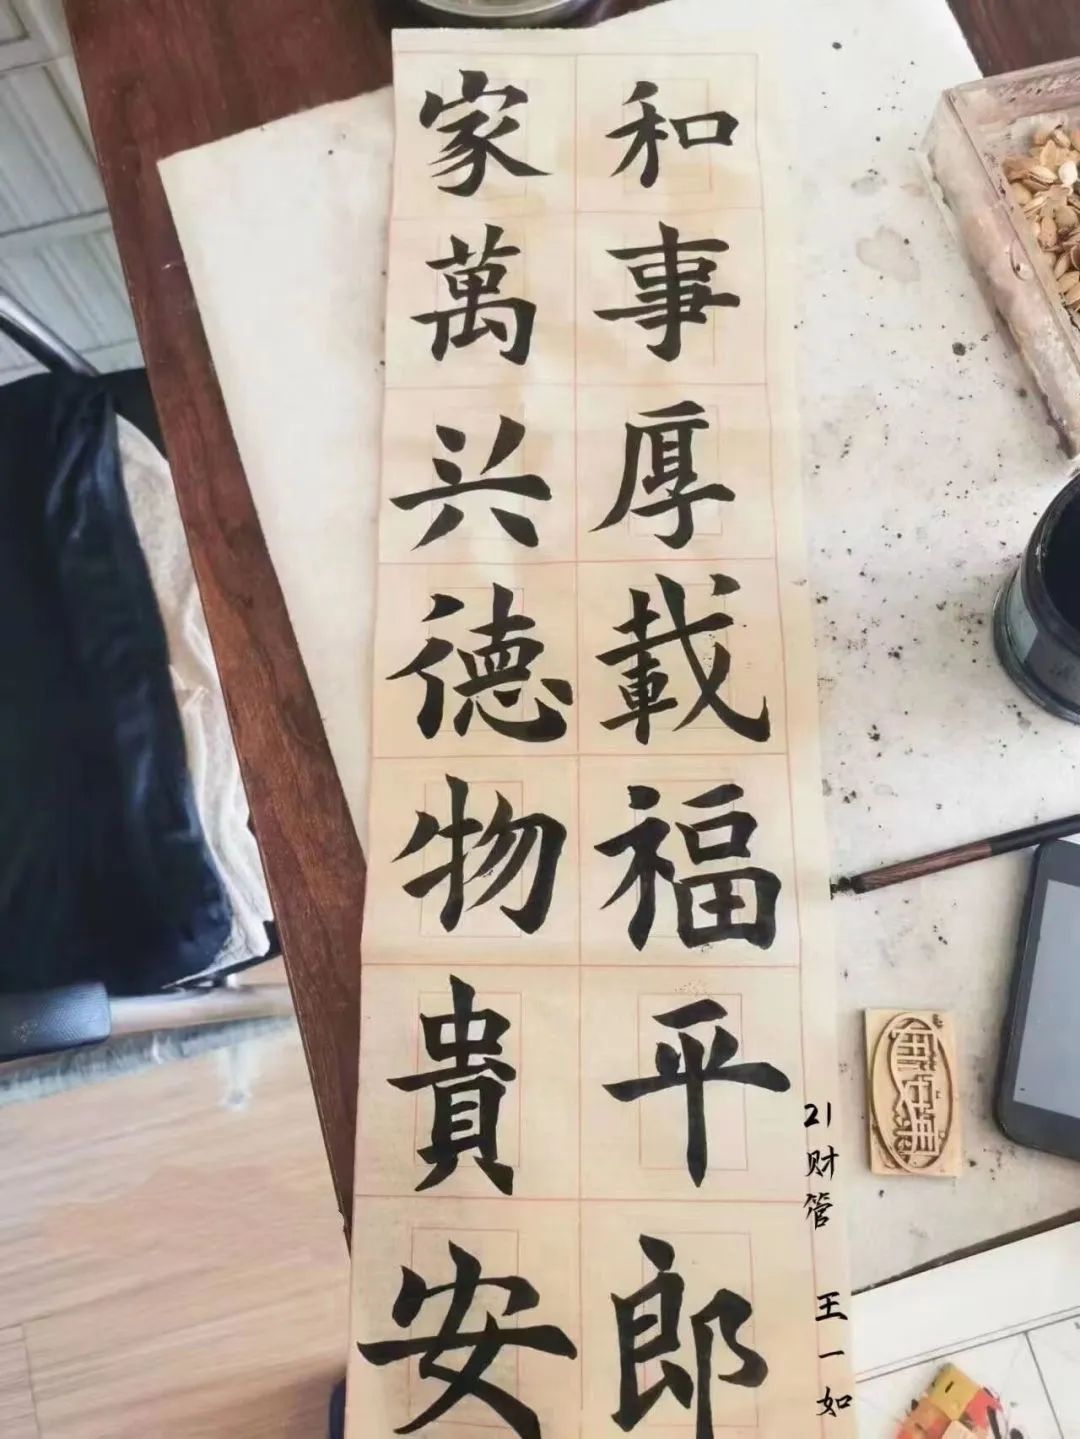 家和
萬事
兴厚
德載
物福
貴平
安郎
21财管 王一如